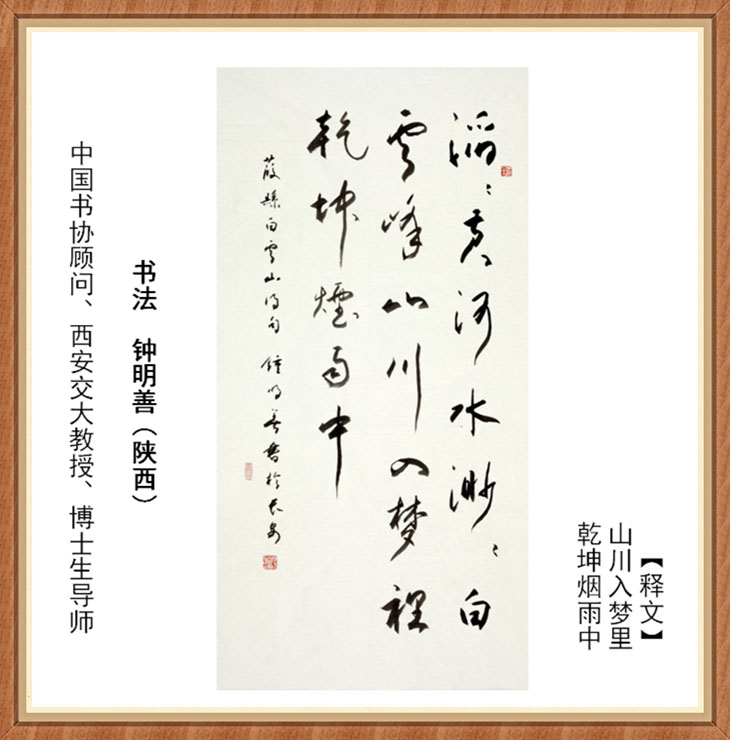 【释文】
山川入梦里
乾坤烟雨中
滔〻黄河水渺〻白
雲峰山川入梦裡
乾坤煙雨中
葭縣白雲山得句 鍾明善書於長安
书法 钟明善（陕西）
中国书协顾问、西安交大教授、博士生导师